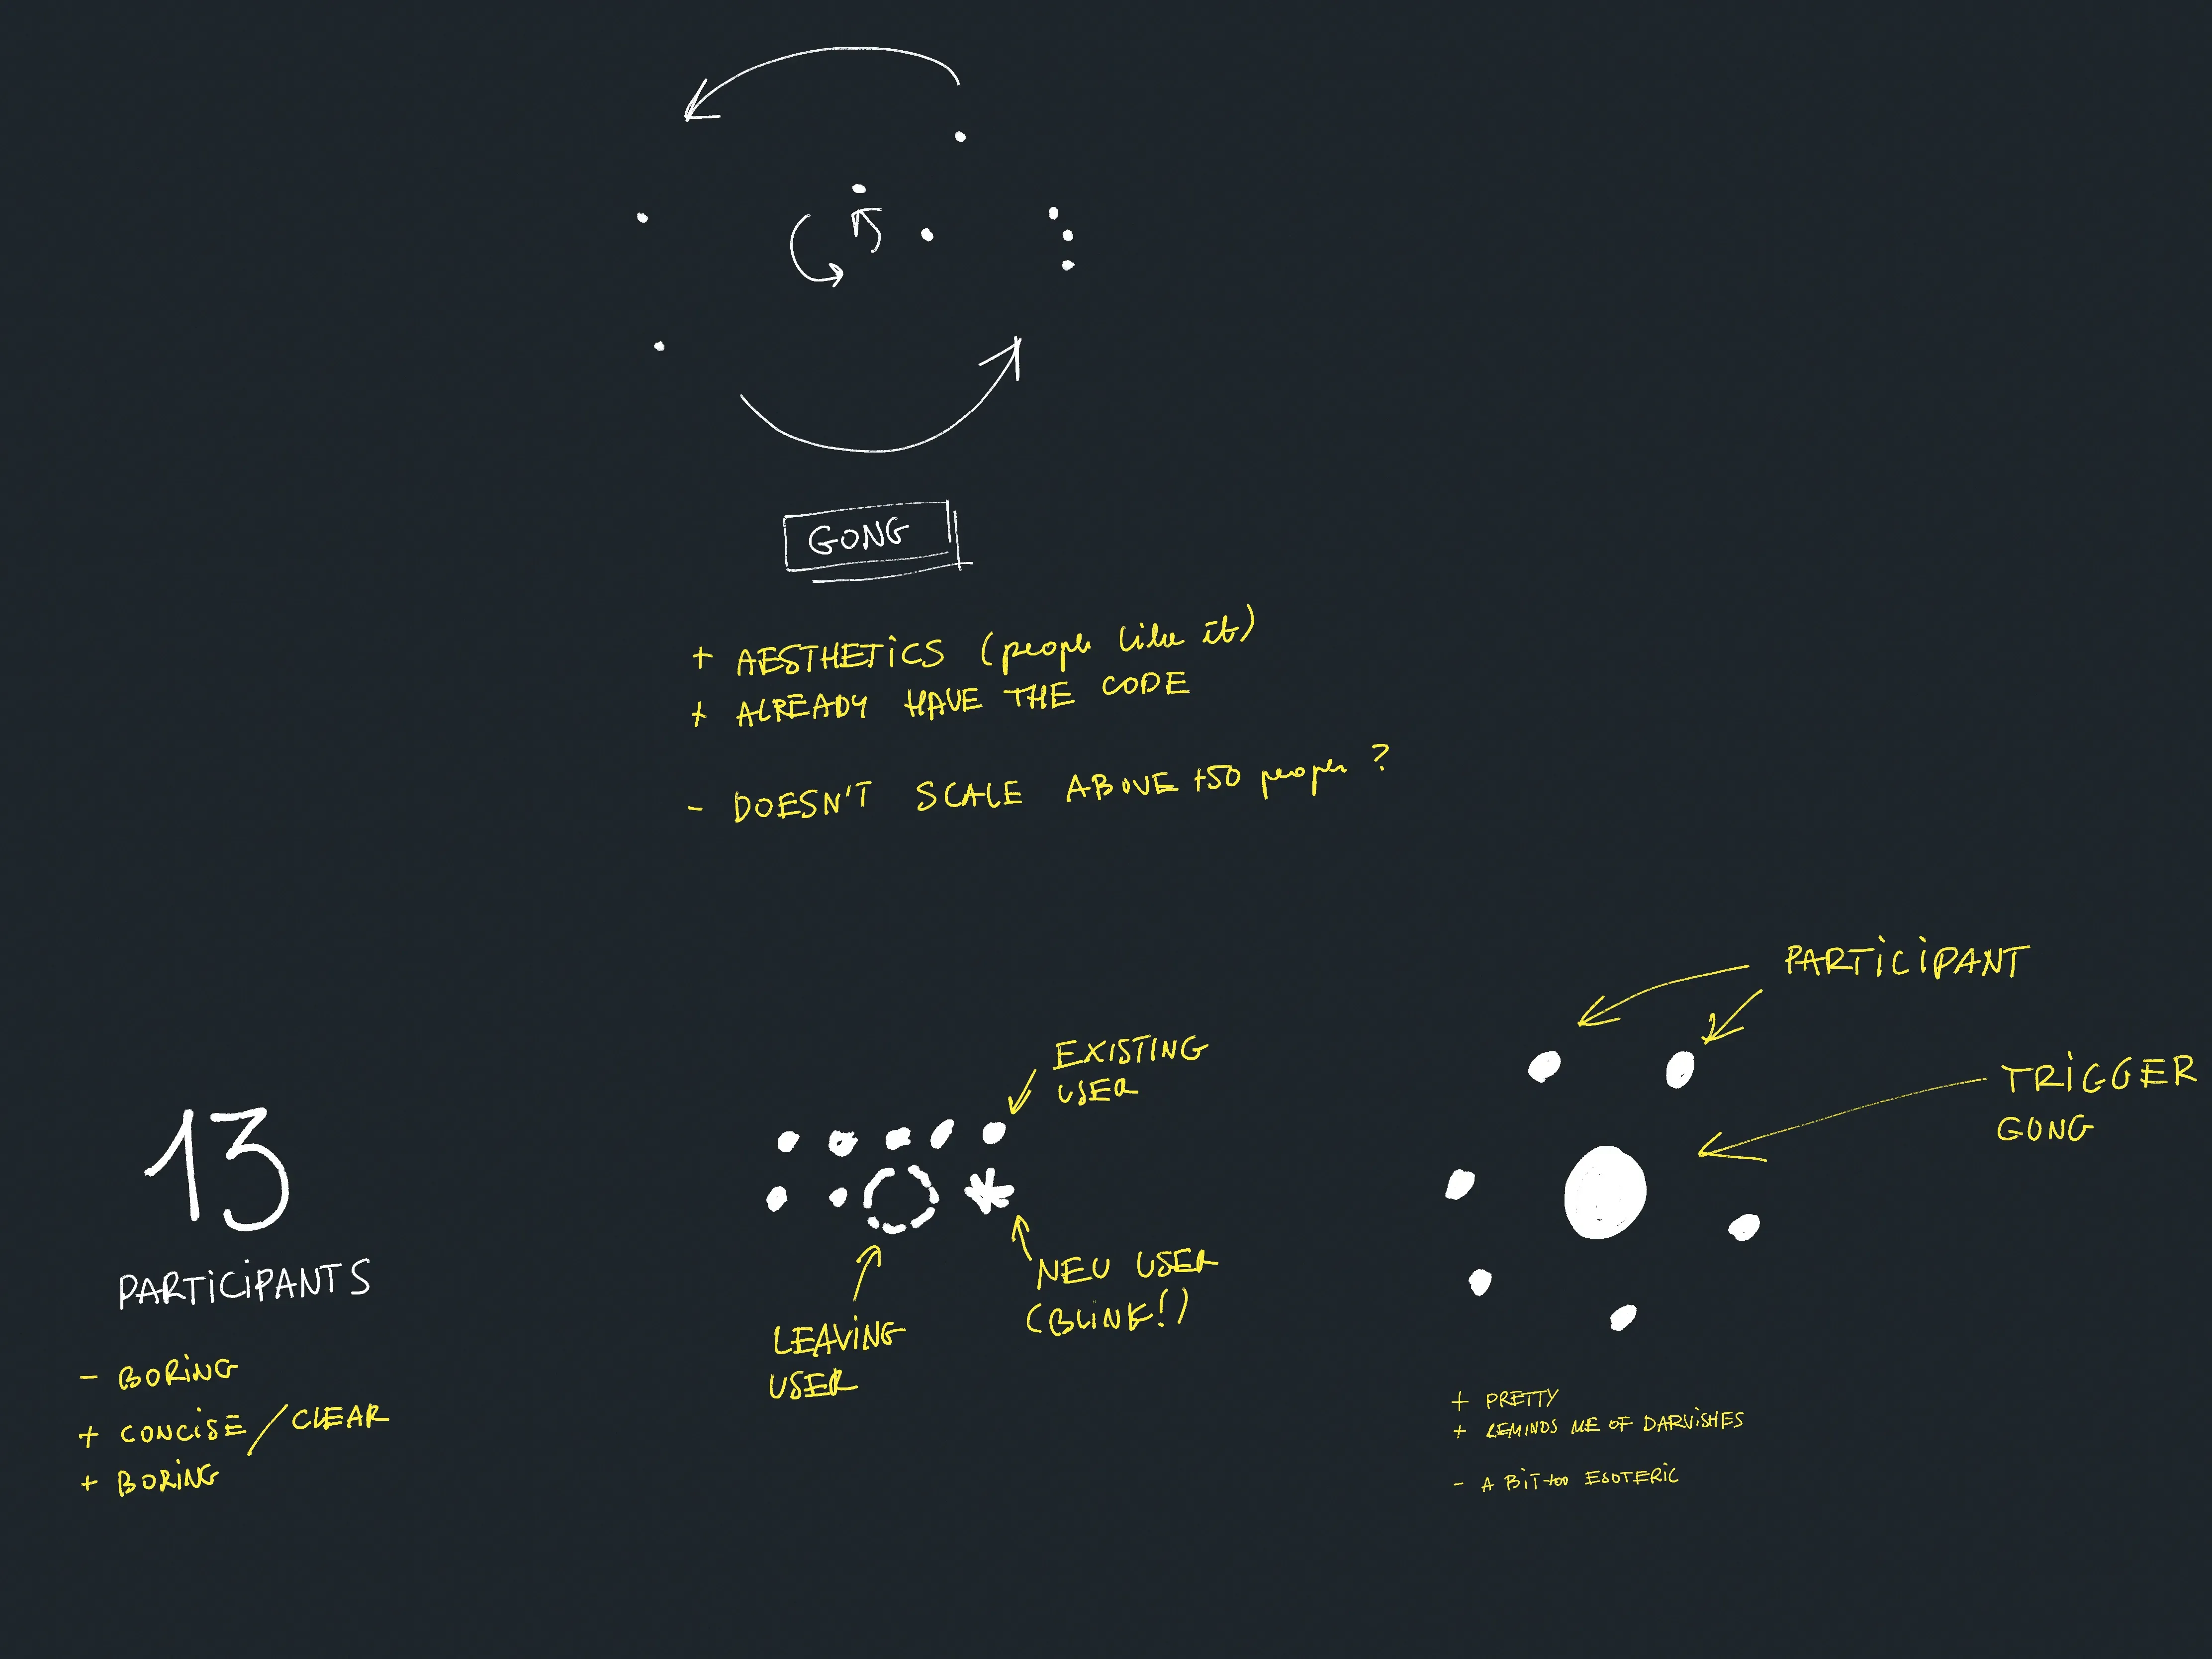 GONG
+ AESTHETICS (people like it)
+ ALREADY HAVE THE CODE
- DOESN'T SCALE ABOVE +50 people ?
13
PARTICIPANTS
- BORING
+ CONCISE / CLEAR
+ BORING
EXISTING
USER
LEAVING
USER
NEW USER
(BLINK!)
PARTICIPANT
TRIGGER
GONG
+ PRETTY
+ REMINDS ME OF DARVISHES
- A BIT too ESOTERIC